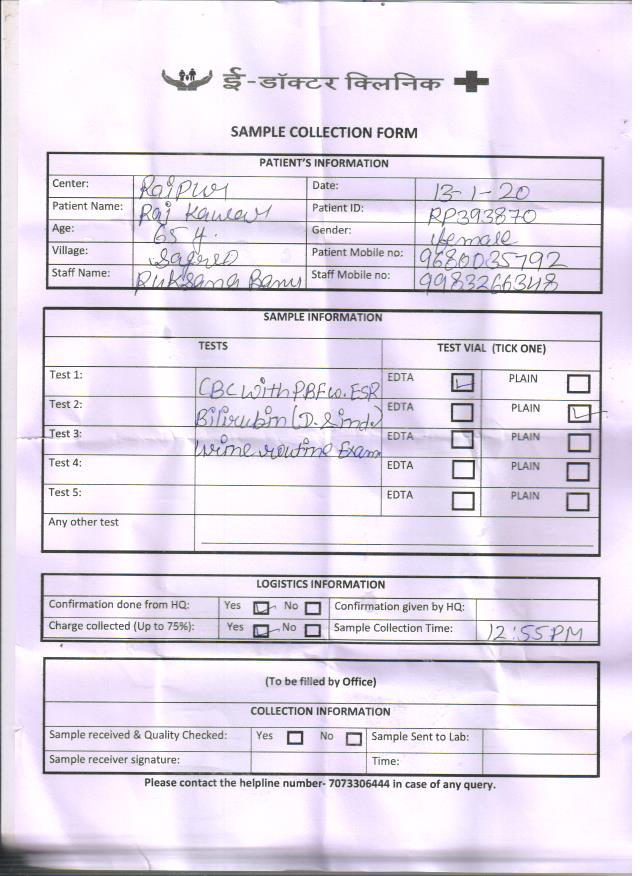 ई-डॉक्टर क्लिनिक
SAMPLE COLLECTION FORM
PATIENT'S INFORMATION
Center: Raipur Date: 13-1-20
Patient Name: Raj Kanwar Patient ID: RP393870
Age: 65 y. Gender: female
Village: Patient Mobile no: 9680035792
Staff Name: Ruksana Banu Staff Mobile no: 9983266348
SAMPLE INFORMATION
TESTS TEST VIAL (TICK ONE)
Test 1: CBC with PBF w. ESR EDTA PLAIN
Test 2: Bilirubin (D. & ind.) EDTA PLAIN
Test 3: urine routine Exam EDTA PLAIN
Test 4: EDTA PLAIN
Test 5: EDTA PLAIN
Any other test
LOGISTICS INFORMATION
Confirmation done from HQ: Yes No Confirmation given by HQ:
Charge collected (Up to 75%): Yes No Sample Collection Time: 12:55PM
(To be filled by Office)
COLLECTION INFORMATION
Sample received & Quality Checked: Yes No Sample Sent to Lab:
Sample receiver signature: Time:
Please contact the helpline number- 7073306444 in case of any query.